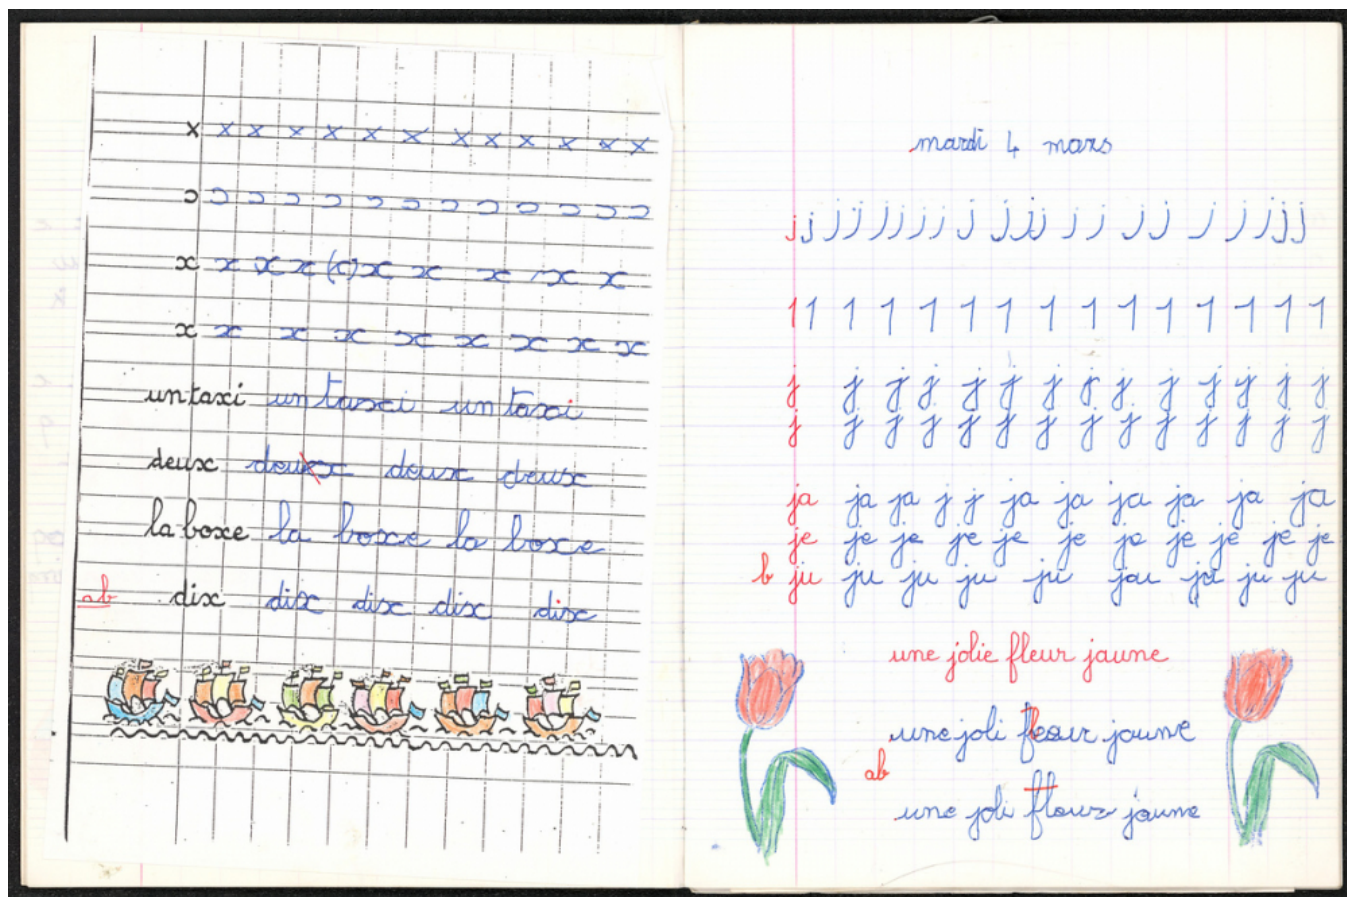 x x x x x x x x x x x x x
ɔ ɔ ɔ ɔ ɔ ɔ ɔ ɔ ɔ ɔ ɔ ɔ
x x x x (x) x x x x x
x x x x x x x x x
un taxi un taxi un taxi
deux deuxx deux deux
la boxe la boxe la boxe
ab dix dix dix dix dix
mardi 4 mars
j j j j j j j j j j j j j j j j j j j j j
1 1 1 1 1 1 1 1 1 1 1 1 1 1 1
j j j j j j j j j j j j j j
j j j j j j j j j j j j j j
ja ja ja j j ja ja ja ja ja ja
je je je je je je je je je je je
b ju ju ju ju ju jau ju ju ju
une jolie fleur jaune
une joli fleur jaune
ab
une joli fleur jaune